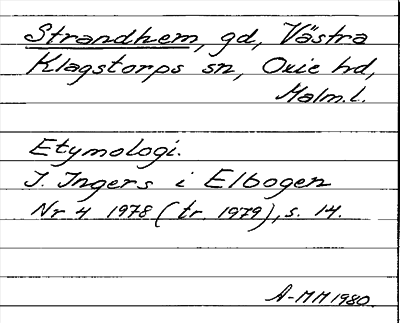 Strandhem, gd, Västra
Klagstorps sn, Oxie hd,
Malm.l.
Etymologi.
I. Ingers i Elbogen
Nr 4 1978 (tr. 1979), s. 14.
A-MM 1980.